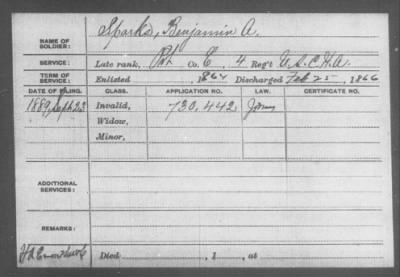 NAME OF SOLDIER: Sparks, Benjamin A.
SERVICE: Late rank, Pvt Co. E, 4 Reg't U.S.C.H.A.
TERM OF SERVICE: Enlisted , 1864 Discharged Feb 25, 1866
DATE OF FILING. CLASS. APPLICATION NO. LAW. CERTIFICATE NO.
1889 Sept 23 Invalid, 730.442
Widow,
Minor,
ADDITIONAL SERVICES:
REMARKS:
Died , 1 , at